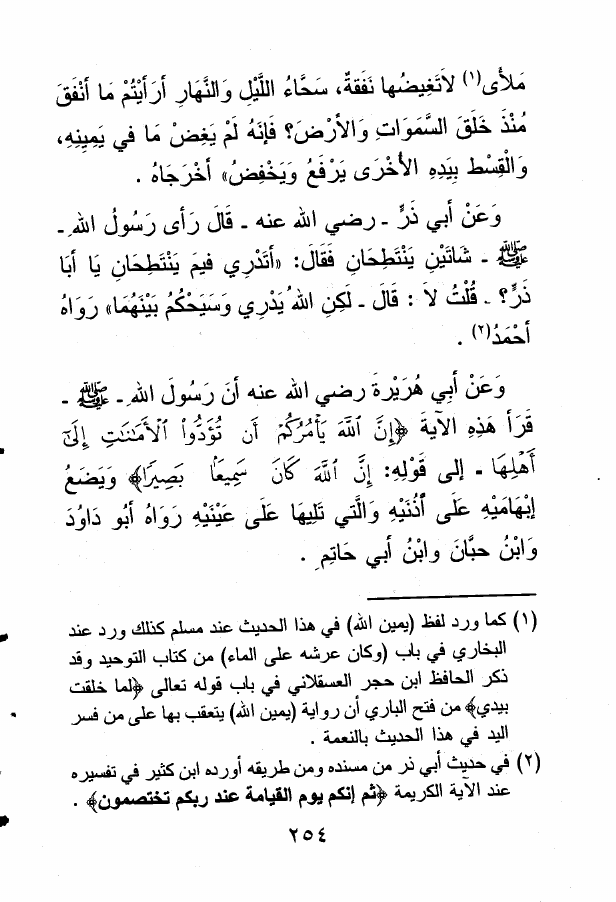 مَلأَى(١) لاَتَغِيضُها نَفَقةٌ، سَحَّاءُ اللَّيْلِ وَالنَّهَارِ أرَأَيْتُمْ مَا أَنْفَقَ
مُنْذَ خَلَقَ السَّمَوَاتِ وَالأرْضَ؟ فَإنَهُ لَمْ يَغِضْ مَا في يَمِينِهِ،
وَالْقِسْط بِيَدِهِ الأُخْرَى يَرْفَعُ وَيَخْفِضُ» أخْرَجَاهُ .
وَعَنْ أبي ذَرٍّ ـ رضي الله عنه ـ قَالَ رَأى رَسُولُ اللهِ ـ
ﷺ ـ شَاتَيْنِ يَنْتَطِحَانِ فَقَالَ: «أَتَدْرِي فيمَ يَنْتَطِحَانِ يَا أبَا
ذَرٍّ؟ ـ قُلْتُ لاَ : قَالَ ـ لَكِنِ اللهُ يَدْرِي وَسَيَحْكُمُ بَيْنَهُمَا» رَوَاهُ
أحْمَدُ(٢) .
وَعَنْ أبي هُرَيْرةَ رضي الله عنه أنَ رَسُولَ اللهِ ـ ﷺ ـ
قَرَأ هَذِهِ الآيةَ ﴿إِنَّ اللَّهَ يَأْمُرُكُمْ أَن تُؤَدُّواْ الْأَمَٰنَٰتِ إِلَىٰٓ
أَهْلِهَا ـ إلى قَوْلِهِ: إِنَّ اللَّهَ كَانَ سَمِيعًا بَصِيرًا﴾ وَيَضَعُ
إبْهَامَيْهِ عَلَى أُذُنَيْهِ وَالَّتي تَلِيهَا عَلَى عَيْنَيْهِ رَوَاهُ أبُو دَاوُدَ
وَابْنُ حبَّانَ وابْنُ أبي حَاتِمٍ .
(١) كما ورد لفظ (يمين الله) في هذا الحديث عند مسلم كذلك ورد عند
البخاري في باب (وكان عرشه على الماء) من كتاب التوحيد وقد
ذكر الحافظ ابن حجر العسقلاني في باب قوله تعالى ﴿لما خلقت
بيدي﴾ من فتح الباري أن رواية (يمين الله) يتعقب بها على من فسر
اليد في هذا الحديث بالنعمة .
(٢) في حديث أبي ذر من مسنده ومن طريقه أورده ابن كثير في تفسيره
عند الآية الكريمة ﴿ثم إنكم يوم القيامة عند ربكم تختصمون﴾ .
٢٥٤